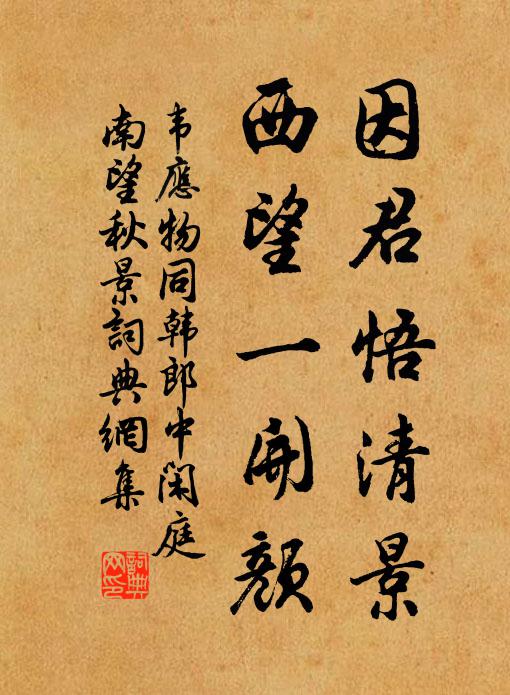 因君悟清景
西望一開顏
韦應物同韩郎中闲庭
南望秋景詞典網集
詞典
网印